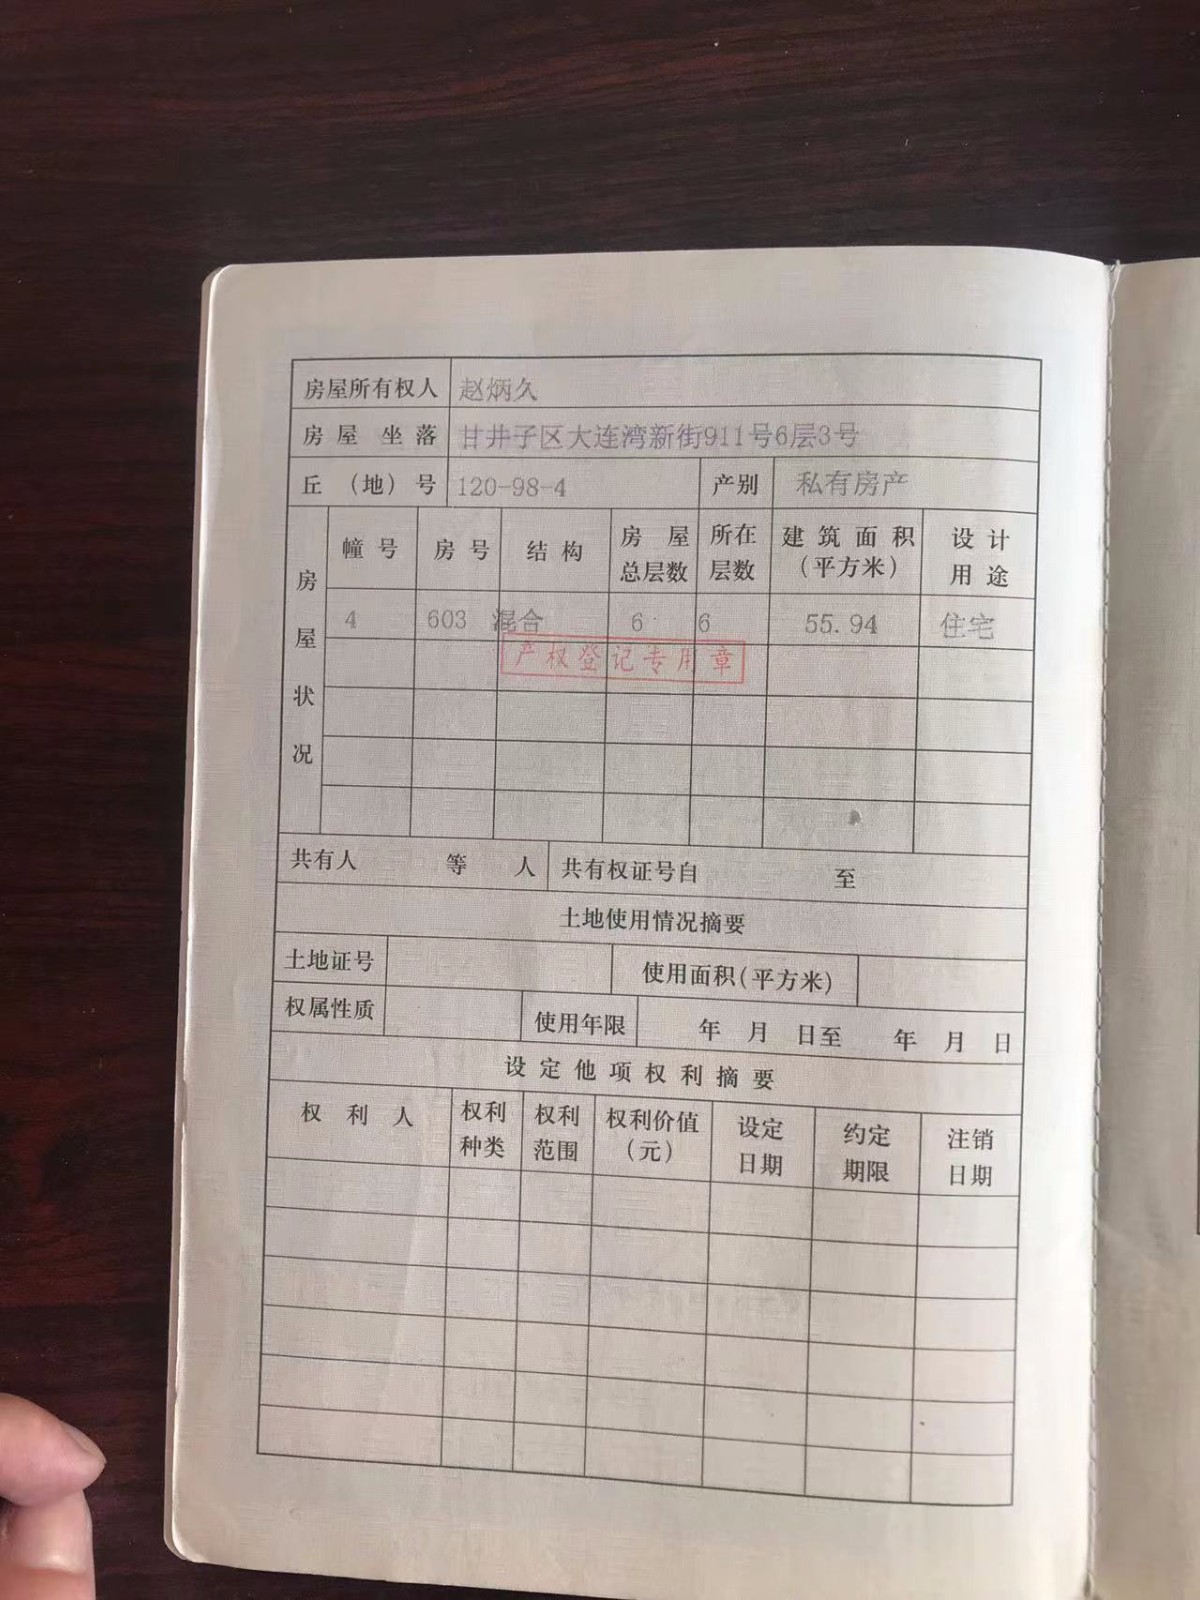 房屋所有权人 赵炳久
房屋 坐落 甘井子区大连湾新街911号6层3号
丘 (地) 号 120-98-4 产别 私有房产
房屋状况
幢号 房号 结构 房屋总层数 所在层数 建筑面积(平方米) 设计用途
4 603 混合 6 6 55.94 住宅
产权登记专用章
共有人 等 人 共有权证号自 至
土地使用情况摘要
土地证号 使用面积(平方米)
权属性质 使用年限 年 月 日至 年 月 日
设定他项权利摘要
权利人 权利种类 权利范围 权利价值(元) 设定日期 约定期限 注销日期